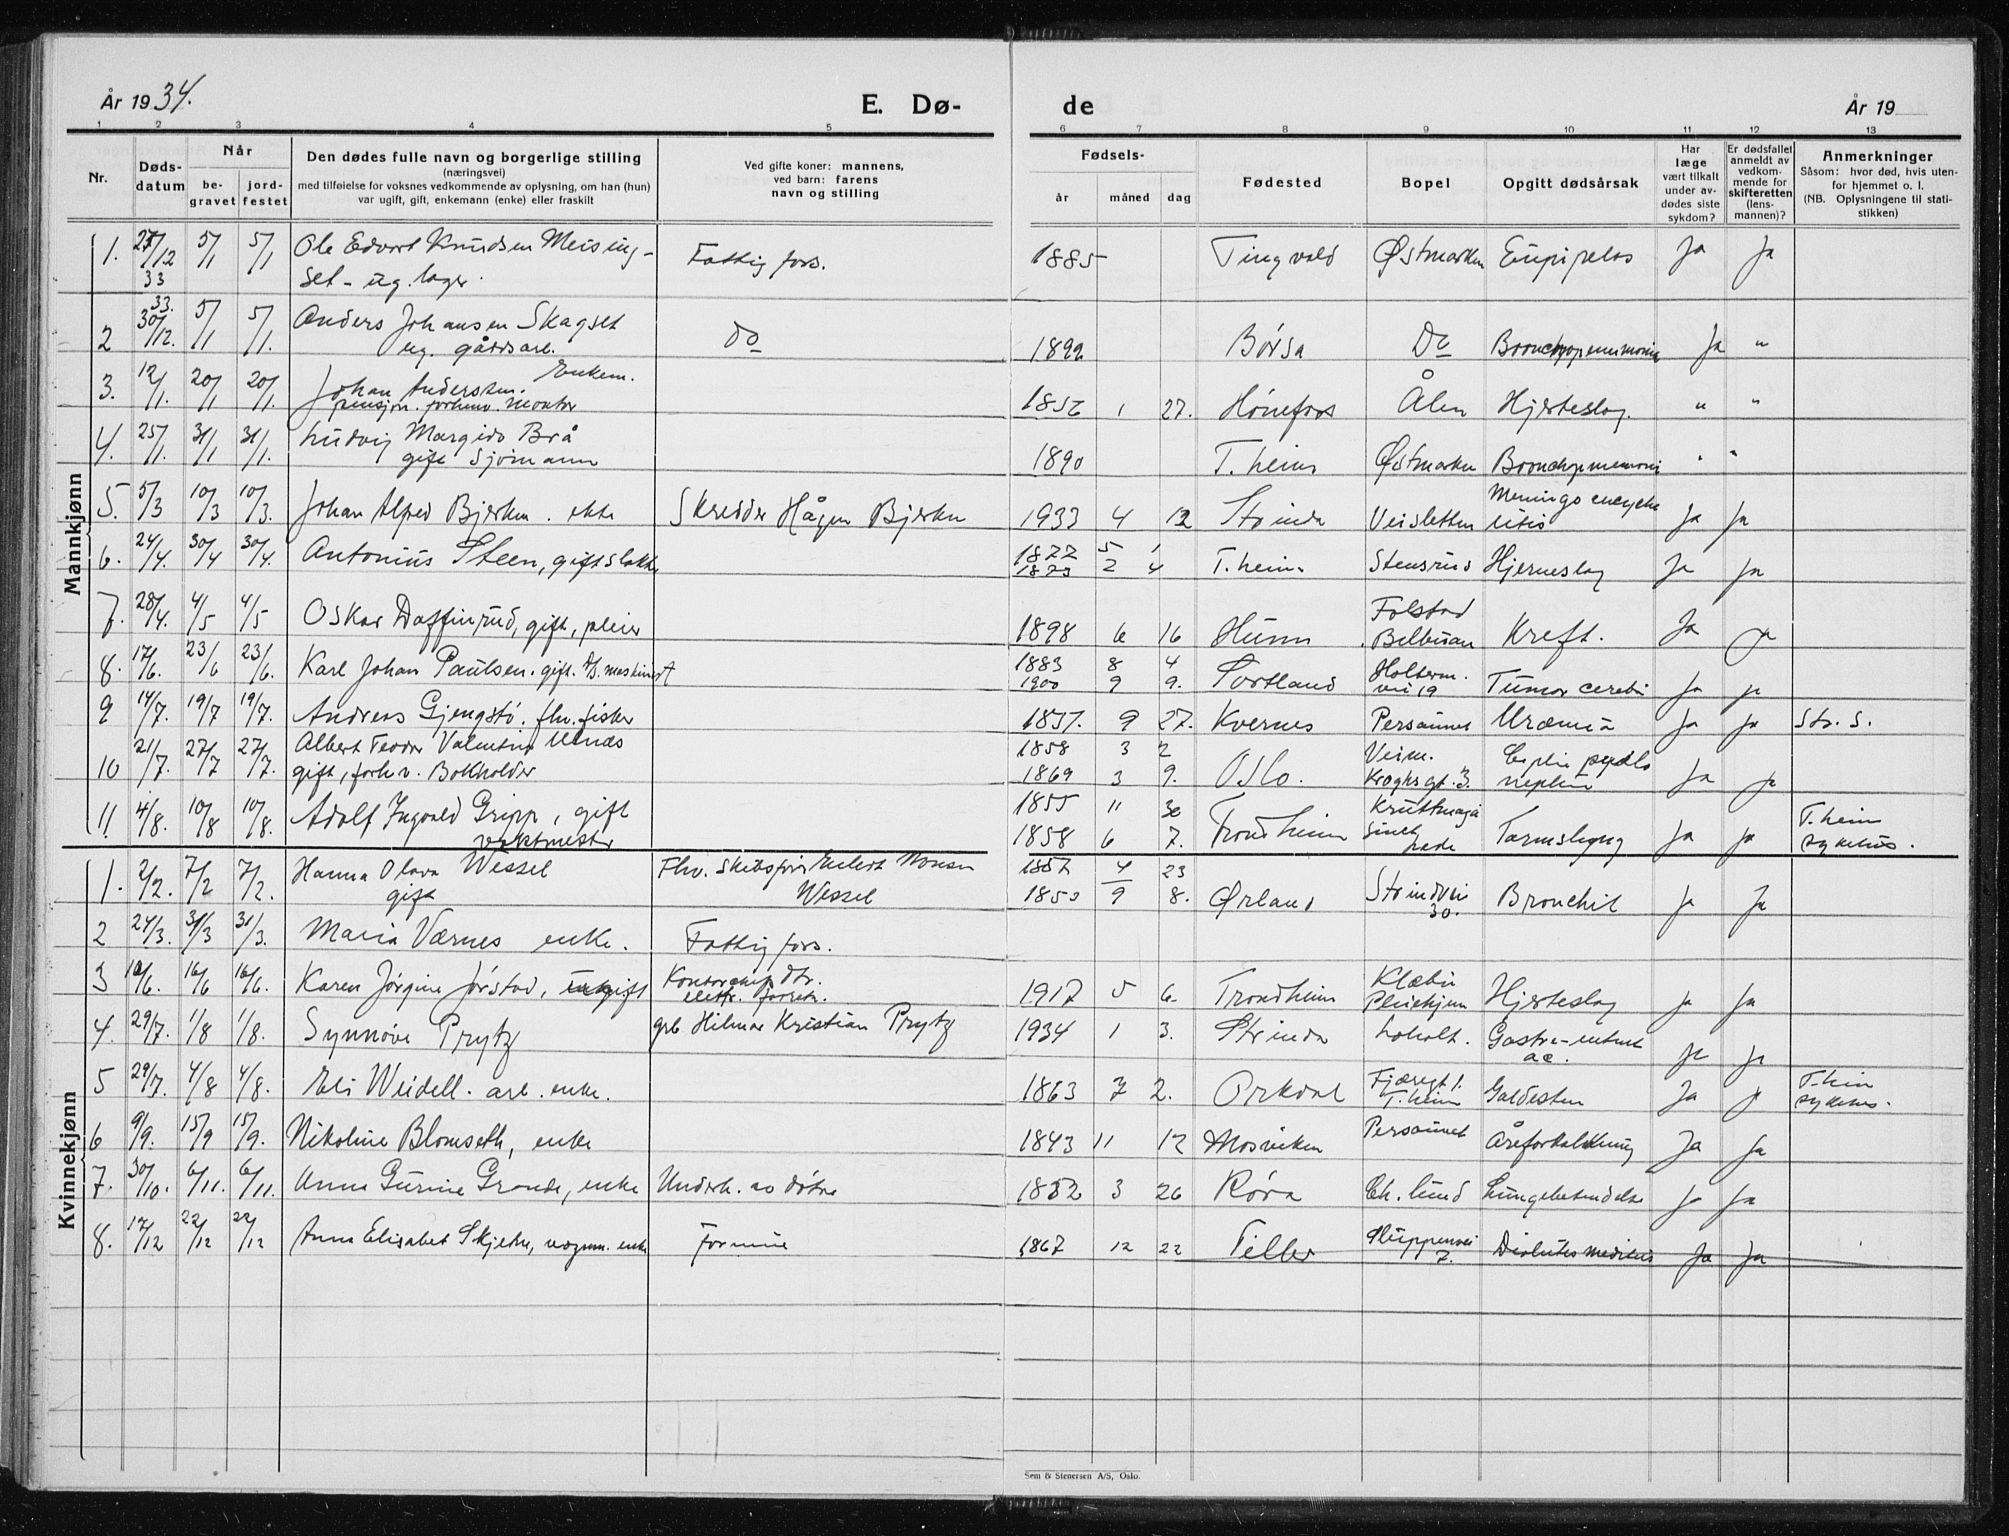 År 1934.
E. Dø-
de
År 19
1 2 3 4 5 6 7 8 9 10 11 12 13
Nr.
Døds-
datum
Når
be-
gravet
jord-
festet
Den dødes fulle navn og borgerlige stilling
(næringsvei)
med tilføielse for voksnes vedkommende av oplysning, om han (hun)
var ugift, gift, enkemann (enke) eller fraskilt
Ved gifte koner: mannens,
ved barn: farens
navn og stilling
Fødsels-
år måned dag
Fødested
Bopel
Opgitt dødsårsak
Har
læge
vært tilkalt
under av-
dødes siste
sykdom?
Er dødsfallet
anmeldt av
vedkom-
mende for
skifteretten
(lens-
mannen)?
Anmerkninger
Såsom: hvor død, hvis uten-
for hjemmet o. l.
(NB. Oplysningene til stati-
stikken)
Mannkjønn
1. 27/12 33 5/1 5/1 Ole Edvart Knudsen Meising-
set - ug. lager. Fattig fors. 1885 Tingvold Østmarken Ja Ja
2 33. 30/12. 5/1 5/1. Anders Johansen Skagset
ug. gårdsarb. Do 1892 Børsa Do Bronchopneumonia Ja "
3. 12/1. 20/1 20/1. Johan Andersen. Enkem.
pensjon. forhenv. montør 1852 1 27. Hønefoss Ålen Hjerteslag. " "
4. 25/1. 31/1 31/1. Ludvig Margido Brå
gift Sjømann 1890 T.heim Østmarken Bronchopneumoni " "
5. 5/3 10/3 10/3. Johan Alfred Bjerken. ekte Skredder Hågen Bjerken 1933 4 12 Strinda Veisletten Ja Ja
6. 24/4. 30/4 30/4. Antonius Steen, gift slakter 1872 5 1
1873 2 4 T.heim Stensrud Hjerneslag Ja Ja
7. 28/4. 4/5 4/5 Oskar Daffinrud, gift, pleier 1898 6 16 Hunn Folstad
Belbuan Kreft. Ja Ja
8. 17/6. 23/6 23/6. Karl Johan Paulsen. gift. maskinist 1883 8 4
1900 9 9. Sortland Holterm.
vei 19 Tumor cerebri Ja Ja
9 14/7. 19/7 19/7. Andreas Gjengstø. fhv. fisker 1857. 9 27. Kvernes Persaunet Uræmia Ja Ja Str. S.
10 21/7. 27/7 27/7. Albert Teodor Valentin
gift, forhv. Bokholder 1858 3 2
1869 3 9. Oslo. Veim.
Kroghsgt. 3. Ja Ja
11 4/8. 10/8 10/8. Adolf Ingvald Gripp, gift
vektmester 1855 11 30
1858 6 7. Trondheim Kruttmaga
sinet
Lade Tarmslyng Ja Ja T.heim
sykehus.
Kvinnekjønn
1. 2/2. 7/2 7/2. Hanna Olava Wessel
gift Fhv. Skibsfører Eilert Monsen
Wessel 1857 4 23
1850 9 8. Ørland Strindvei
30. Bronchit Ja Ja
2 24/3. 31/3 31/3. Maria Værnes enke. Fattig fors.
3 10/6. 16/6 16/6. Karen Jørgine Jørstad, ugift Kontorchefs dtr.
elektr. forretn. 1917 5 6. Trondheim Klæbu
Pleiehjem Hjerteslag Ja Ja
4. 29/7. 1/8 1/8. Synnøve Prytz grb Hilmar Kristian Prytz 1934 1 3. Strinda Loholt. Gastro-enterit
ac. Ja Ja
5 29/7. 4/8 4/8. Eli Weidell. arb. enke. 1863 7 2. Orkdal Fjæregt 1.
T.heim Galdesten Ja Ja T.heim
sykehus.
6 9/9. 15/9 15/9. Nikoline Blomseth, enke 1843 11 12 Mosviken Persaunet Åreforkalkning Ja Ja
7. 30/10. 6/11. 6/11. Anna Gurine Grande, enke Underh. av døtre 1852 3 26 Røra Ch. lund Lungebetendelse Ja Ja
8. 17/12 22/12 22/12 Anna Elisabet Skjetne, vognm. enke Formue 1867 12 22 Tiller Sluppenvei
7. Ja Ja
Sem & Stenersen A/S, Oslo.